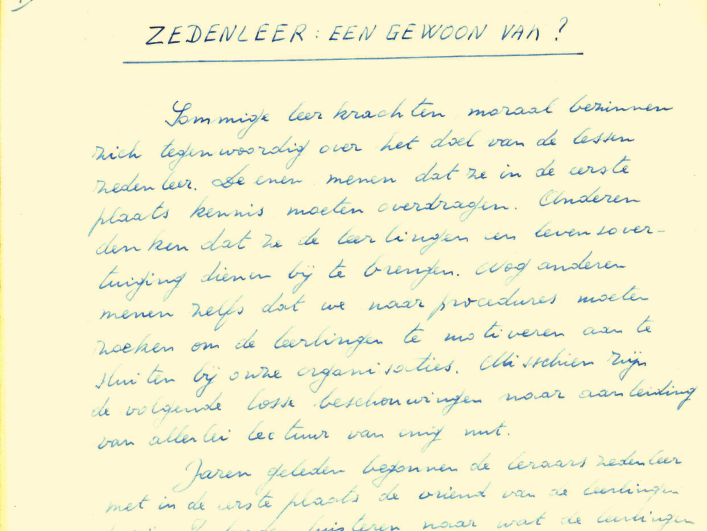 ZEDENLEER: EEN GEWOON VAK?
Sommige leerkrachten moraal bezinnen
zich tegenwoordig over het doel van de lessen
zedenleer. De enen menen dat ze in de eerste
plaats kennis moeten overdragen. Anderen
denken dat ze de leerlingen en levensover-
tuiging dienen bij te brengen. Nog anderen
menen zelfs dat we naar procedures moeten
zoeken om de leerlingen te motiveren aan te
sluiten bij onze organisaties. Misschien zijn
de volgende losse beschouwingen naar aanleiding
van allerlei lectuur van enig nut.
Jaren geleden begonnen de leraars zedenleer
met in de eerste plaats de vriend van de leerlingen
luisteren naar wat de leerlingen